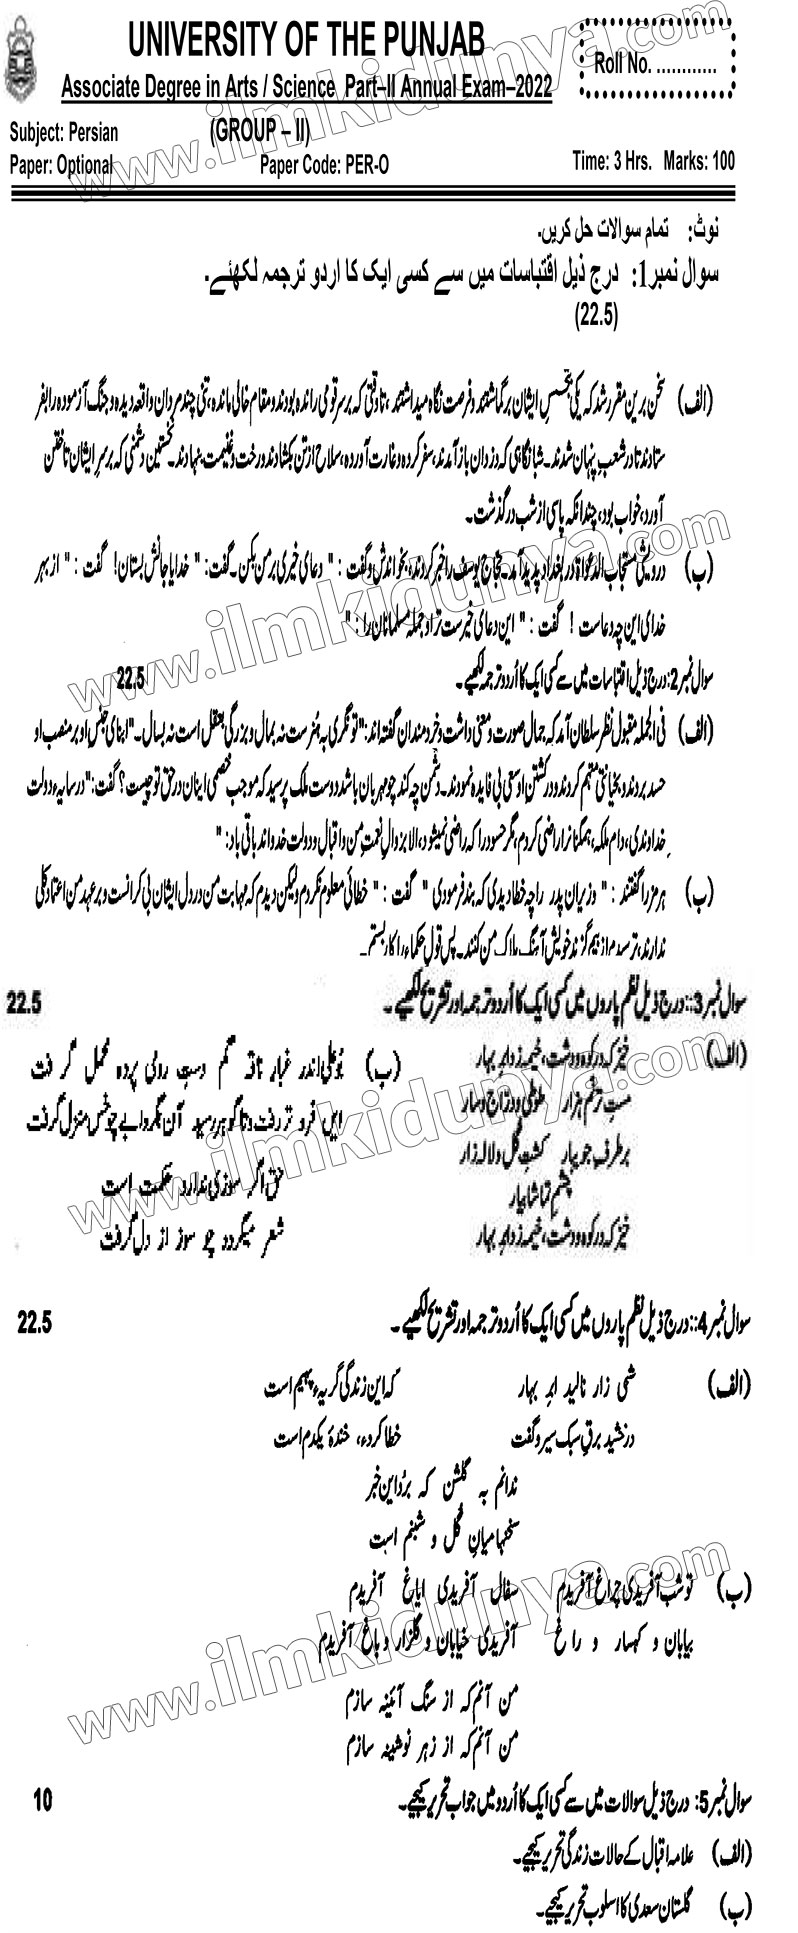 UNIVERSITY OF THE PUNJAB
Associate Degree in Arts / Science Part–II Annual Exam–2022
Roll No. ............
Subject: Persian (GROUP – II)
Paper: Optional Paper Code: PER-O Time: 3 Hrs. Marks: 100
نوٹ: تمام سوالات حل کریں.
سوال نمبر1: درج ذیل اقتباسات میں سے کسی ایک کا اردو ترجمہ لکھئے.
(22.5)
(الف) سخن برین مقرر شد کہ یکی بتجسس ایشان برگماشتند و فرصت نگاہ میداشتند، تا وقتی کہ بر سر قومی راندہ بودند و مقام خالی ماندہ، تنی چند مردان واقعہ دیدہ و جنگ آزمودہ را بفر
ستادند تا در شعب پنہان شدند۔ شبانگاہی کہ دزدان باز آمدند، سفر کردہ و غارت آوردہ، سلاح از تن بکشادند و رخت و غنیمت بنہادند۔ نخستین دشمنی کہ بر سرِ ایشان تاختن
آورد، خواب بود، چندانکہ پاسی از شب درگذشت۔
(ب) درویشی مستجاب الدعوۃ در بغداد پدید آمد۔ حجاج یوسف را خبر کردند، بخواندش و گفت : " دعای خیری بر من بکن۔ گفت: " خدایا جانش بستان! گفت : " از بہر
خدای این چہ دعاست ! گفت : " این دعای خیرست ترا و جملہ مسلمانان را : "
سوال نمبر2: درج ذیل اقتباسات میں سے کسی ایک کا اُردو ترجمہ لکھیے۔ 22.5
(الف) فی الجملہ مقبول نظر سلطان آمد کہ جمال صورت و معنی داشت و خردمندان گفتہ اند: "توانگری بہ ہنرست نہ بمال و بزرگی بعقل است نہ بسال۔" ابنای جنس او بر منصب او
حسد بردند و بخیانتی متہم کردند و در کشتن او سعی بی فایدہ نمودند۔ دشمن چہ کند چو مہربان باشد دوست ملک پرسید کہ موجب خصمی اینان در حق تو چیست؟ گفت: "در سایہء دولت
خداوندی، دام ملکہ، ہمکنانرا راضی کردم، مگر حسود را کہ راضی نمیشود، الا بزوالِ نعمتِ من و اقبال و دولت خداوند باقی باد: "
(ب) ہرمز را گفتند : " وزیران پدر را چہ خطا دیدی کہ بند فرمودی " گفت : " خطائی معلوم نکردم ولیکن دیدم کہ مہابت من در دل ایشان بی کرانست و بر عہد من اعتماد کلی
ندارند، ترسیدم از بیم گزند خویش آہنگ ہلاک من کنند۔ پس قولِ حکماء را کار بستم۔
سوال نمبر3:: درج ذیل نظم پاروں میں کسی ایک کا اُردو ترجمہ اور تشریح لکھیے۔ 22.5
(الف) خیز کہ در کوہ و دشت، خیمہ زد ابرِ بہار
مستِ ترنم ہزار طوطی و دراج و سار
بر طرف جویبار کشتِ گل و لالہ زار
چشمِ تماشا بیار
خیز کہ در کوہ و دشت، خیمہ زد ابرِ بہار
(ب) بوعلی اندر غبار ناقہ گم دستِ رومی پردہ محمل گرفت
ایں فروتر رفت و تا گوہر رسید آن بگردابے چو خس منزل گرفت
حق اگر سوزی ندارد حکمت است
شعر میگردد چو سوز از دل گرفت
سوال نمبر4:: درج ذیل نظم پاروں میں کسی ایک کا اُردو ترجمہ اور تشریح لکھیے۔ 22.5
(الف) شبی زار نالید ابرِ بہار کہ این زندگی گریہء پیہم است
درخشید برقِ سبک سیر و گفت خطا کردہء، خندۂ یکدم است
ندانم بہ گلشن کہ بُرد این خبر
سخنہا میانِ گل و شبنم است
(ب) تو شب آفریدی چراغ آفریدم سفال آفریدی ایاغ آفریدم
بیابان و کہسار و راغ آفریدی خیابان و گلزار و باغ آفریدم
من آنم کہ از سنگ آئینہ سازم
من آنم کہ از زہر نوشینہ سازم
سوال نمبر5: درج ذیل سوالات میں سے کسی ایک کا اُردو میں جواب تحریر کیجیے۔ 10
(الف) علامہ اقبال کے حالات زندگی تحریر کیجیے۔
(ب) گلستان سعدی کا اسلوب تحریر کیجیے۔
www.ilmkidunya.com
www.ilmkidunya.com
www.ilmkidunya.com
www.ilmkidunya.com